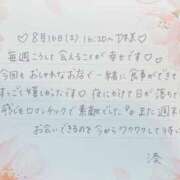 ♡8月16日(土) 16:30〜 ♡
毎週こうして会えることが幸せです♡
今回もおしゃれなお店で一緒に食事ができて
すっごく嬉しかったです♡ 夜にかけて日が落ちて
感じもロマンチックで素敵でした♡ また週末
お会いできるのを今からワクワクして
湊